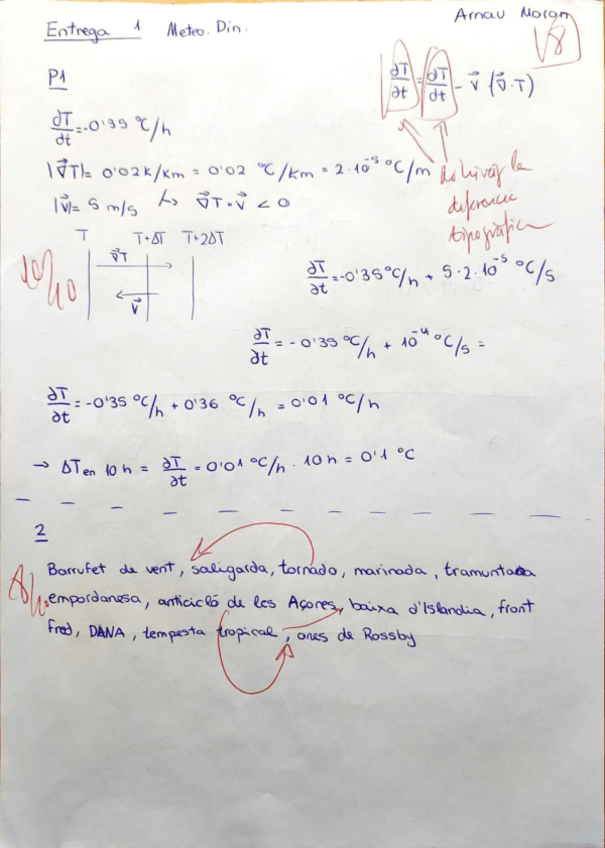 Entrega 1 Meteo. Din.
Arnau Moran
P1
∂T/∂t = ∂T/∂t - v⃗ (∇⃗·T)
dT/dt = -0'35 °C/h
|∇⃗T| = 0'02 K/km = 0'02 °C/km = 2·10⁻⁵ °C/m
|v⃗| = 5 m/s ↳ ∇⃗T · v⃗ < 0
la
diferencia
tipogràfica
T T+ΔT T+2ΔT
∇⃗T
v⃗
10/10
∂T/∂t = -0'35 °C/h + 5·2·10⁻⁵ °C/s
∂T/∂t = -0'35 °C/h + 10⁻⁴ °C/s =
∂T/∂t = -0'35 °C/h + 0'36 °C/h = 0'01 °C/h
→ ΔT en 10 h = ∂T/∂t = 0'01 °C/h · 10 h = 0'1 °C
2
Borrufet de vent, saligarda, tornado, marinada, tramuntana
empordanesa, anticicló de les Açores, baixa d'Islandia, front
fred, DANA, tempesta tropical, ones de Rossby